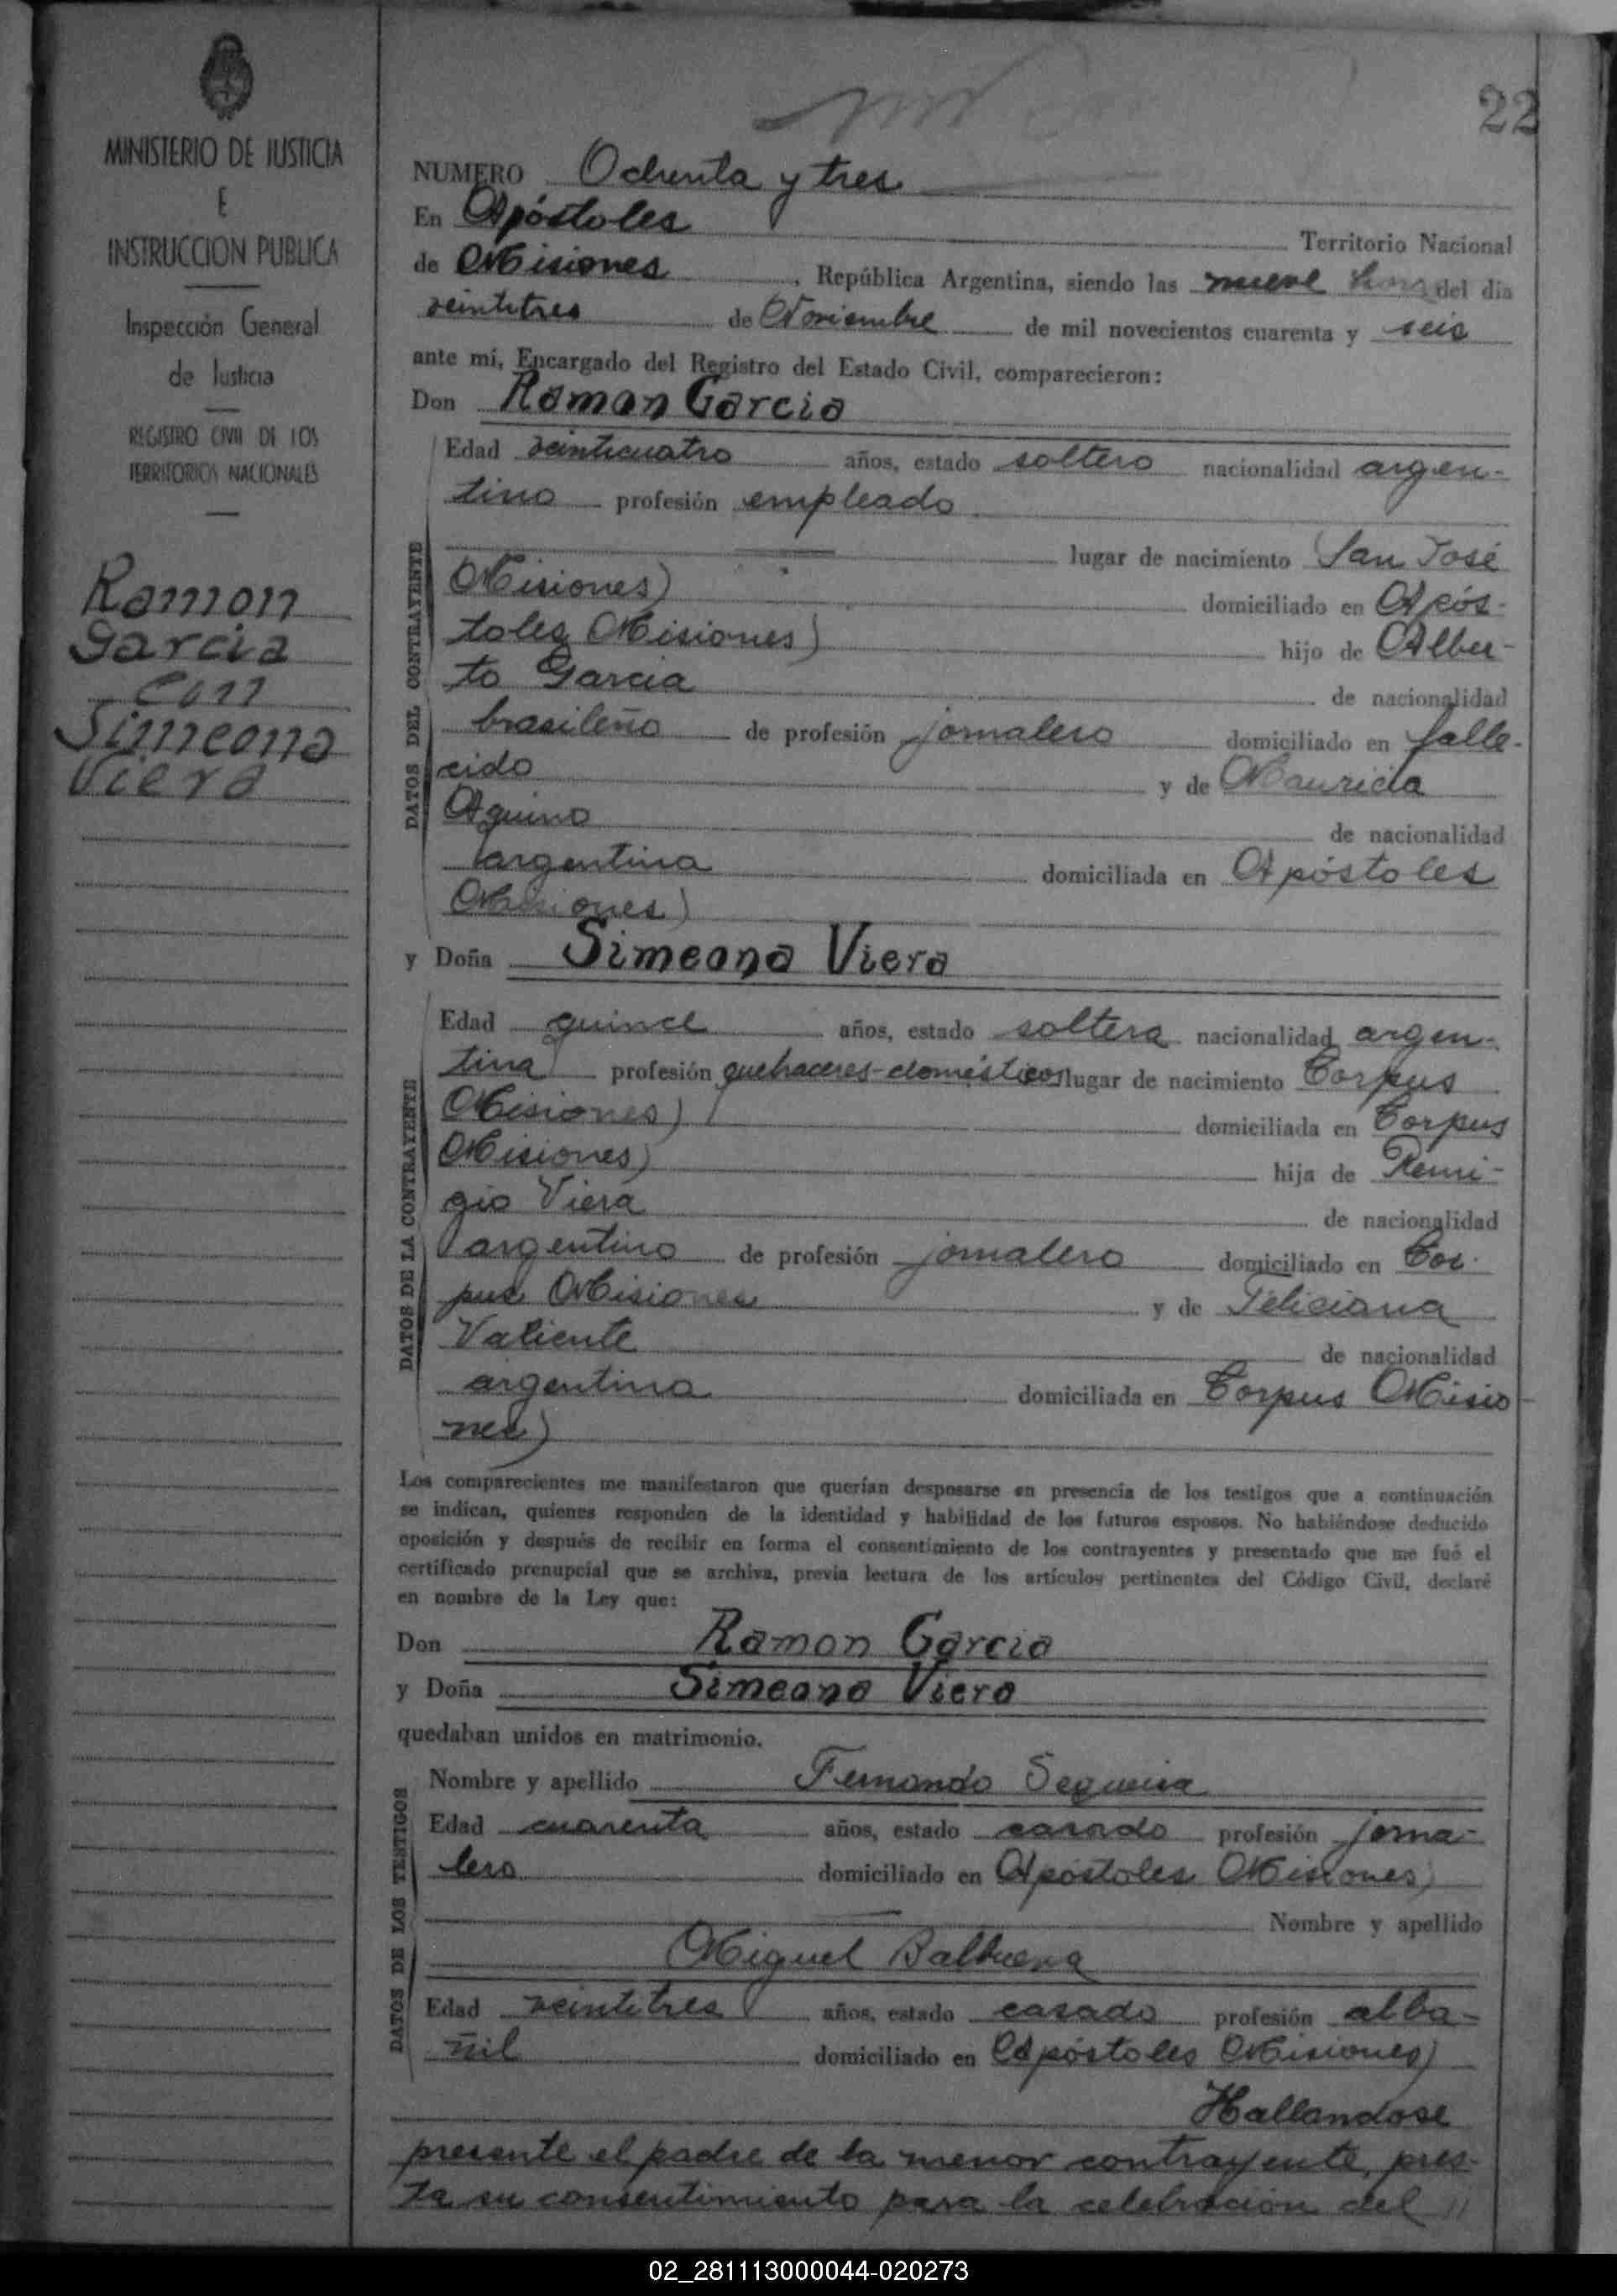 22
MINISTERIO DE JUSTICIA
E
INSTRUCCION PUBLICA
Inspección General
de Justicia
REGISTRO CIVIL DE LOS
TERRITORIOS NACIONALES
Ramon
Garcia
con
Simeona
Viera
NUMERO Ochenta y tres
En Apóstoles Territorio Nacional
de Misiones, República Argentina, siendo las nueve horas del día
veintitres de Noviembre de mil novecientos cuarenta y seis
ante mí, Encargado del Registro del Estado Civil, comparecieron:
Don Ramon Garcia
DATOS DEL CONTRAYENTE
Edad veinticuatro años, estado soltero nacionalidad argen-
tino profesión empleado
lugar de nacimiento San José
Misiones) domiciliado en Após-
toles Misiones) hijo de Alber-
to Garcia de nacionalidad
brasileño de profesión jornalero domiciliado en falle-
cido y de Mauricia
Aquino de nacionalidad
argentina domiciliada en Apóstoles
Misiones)
y Doña Simeona Viera
DATOS DE LA CONTRAYENTE
Edad quince años, estado soltera nacionalidad argen-
tina profesión quehaceres-domésticos lugar de nacimiento Corpus
Misiones) domiciliada en Corpus
Misiones) hija de Remi-
gio Viera de nacionalidad
argentino de profesión jornalero domiciliado en Cor-
pus Misiones y de Feliciana
Valiente de nacionalidad
argentina domiciliada en Corpus Misio-
nes)
Los comparecientes me manifestaron que querían desposarse en presencia de los testigos que a continuación
se indican, quienes responden de la identidad y habilidad de los futuros esposos. No habiéndose deducido
oposición y después de recibir en forma el consentimiento de los contrayentes y presentado que me fué el
certificado prenupcial que se archiva, previa lectura de los artículos pertinentes del Código Civil, declaré
en nombre de la Ley que:
Don Ramon Garcia
y Doña Simeona Viera
quedaban unidos en matrimonio.
DATOS DE LOS TESTIGOS
Nombre y apellido Fernando Sequeira
Edad cuarenta años, estado casado profesión jorna-
lero domiciliado en Apóstoles Misiones)
Nombre y apellido
Miguel Balbuena
Edad veintitres años, estado casado profesión alba-
ñil domiciliado en Apóstoles Misiones)
Hallandose
presente el padre de la menor contrayente, pres-
ta su consentimiento para la celebración del //
02_281113000044-020273